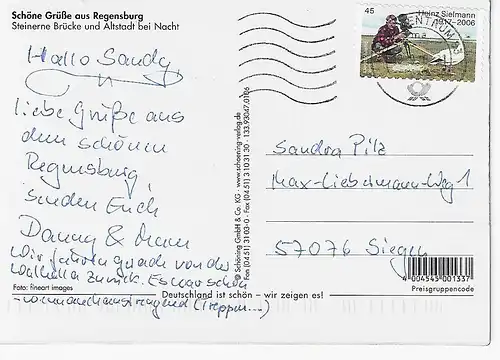 Schöne Grüße aus Regensburg
Steinerne Brücke und Altstadt bei Nacht
Hallo Sandy,
liebe Grüße aus
dem schönen
Regensburg
senden Euch
Danny &
Wir fahren gerade von der
Walhalla zurück. Es war schön
anstrengend (Treppen...)
Foto: fineart images
Deutschland ist schön – wir zeigen es!
© Schöning GmbH & Co. KG · www.schoening-verlag.de
Fon (04 51) 3 10 3-0 · Fax (04 51) 3 10 3
45
Heinz Sielmann
1917-2006
ZENTRUM
Sandra Pilz
Max-Liebermann-Weg 1
57076 Siegen
4 004545 001337
Preisgruppencode